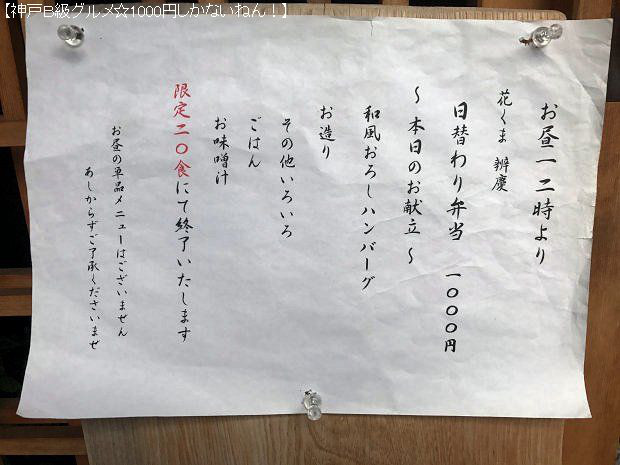 【神戸B級グルメ☆1000円しかないねん！】
お昼一二時より
花くま 辨慶
日替わり弁当 一〇〇〇円
～本日のお献立～
和風おろしハンバーグ
お造り
その他いろいろ
ごはん
お味噌汁
限定二〇食にて終了いたします
お昼の単品メニューはございません
あしからずご了承くださいませ